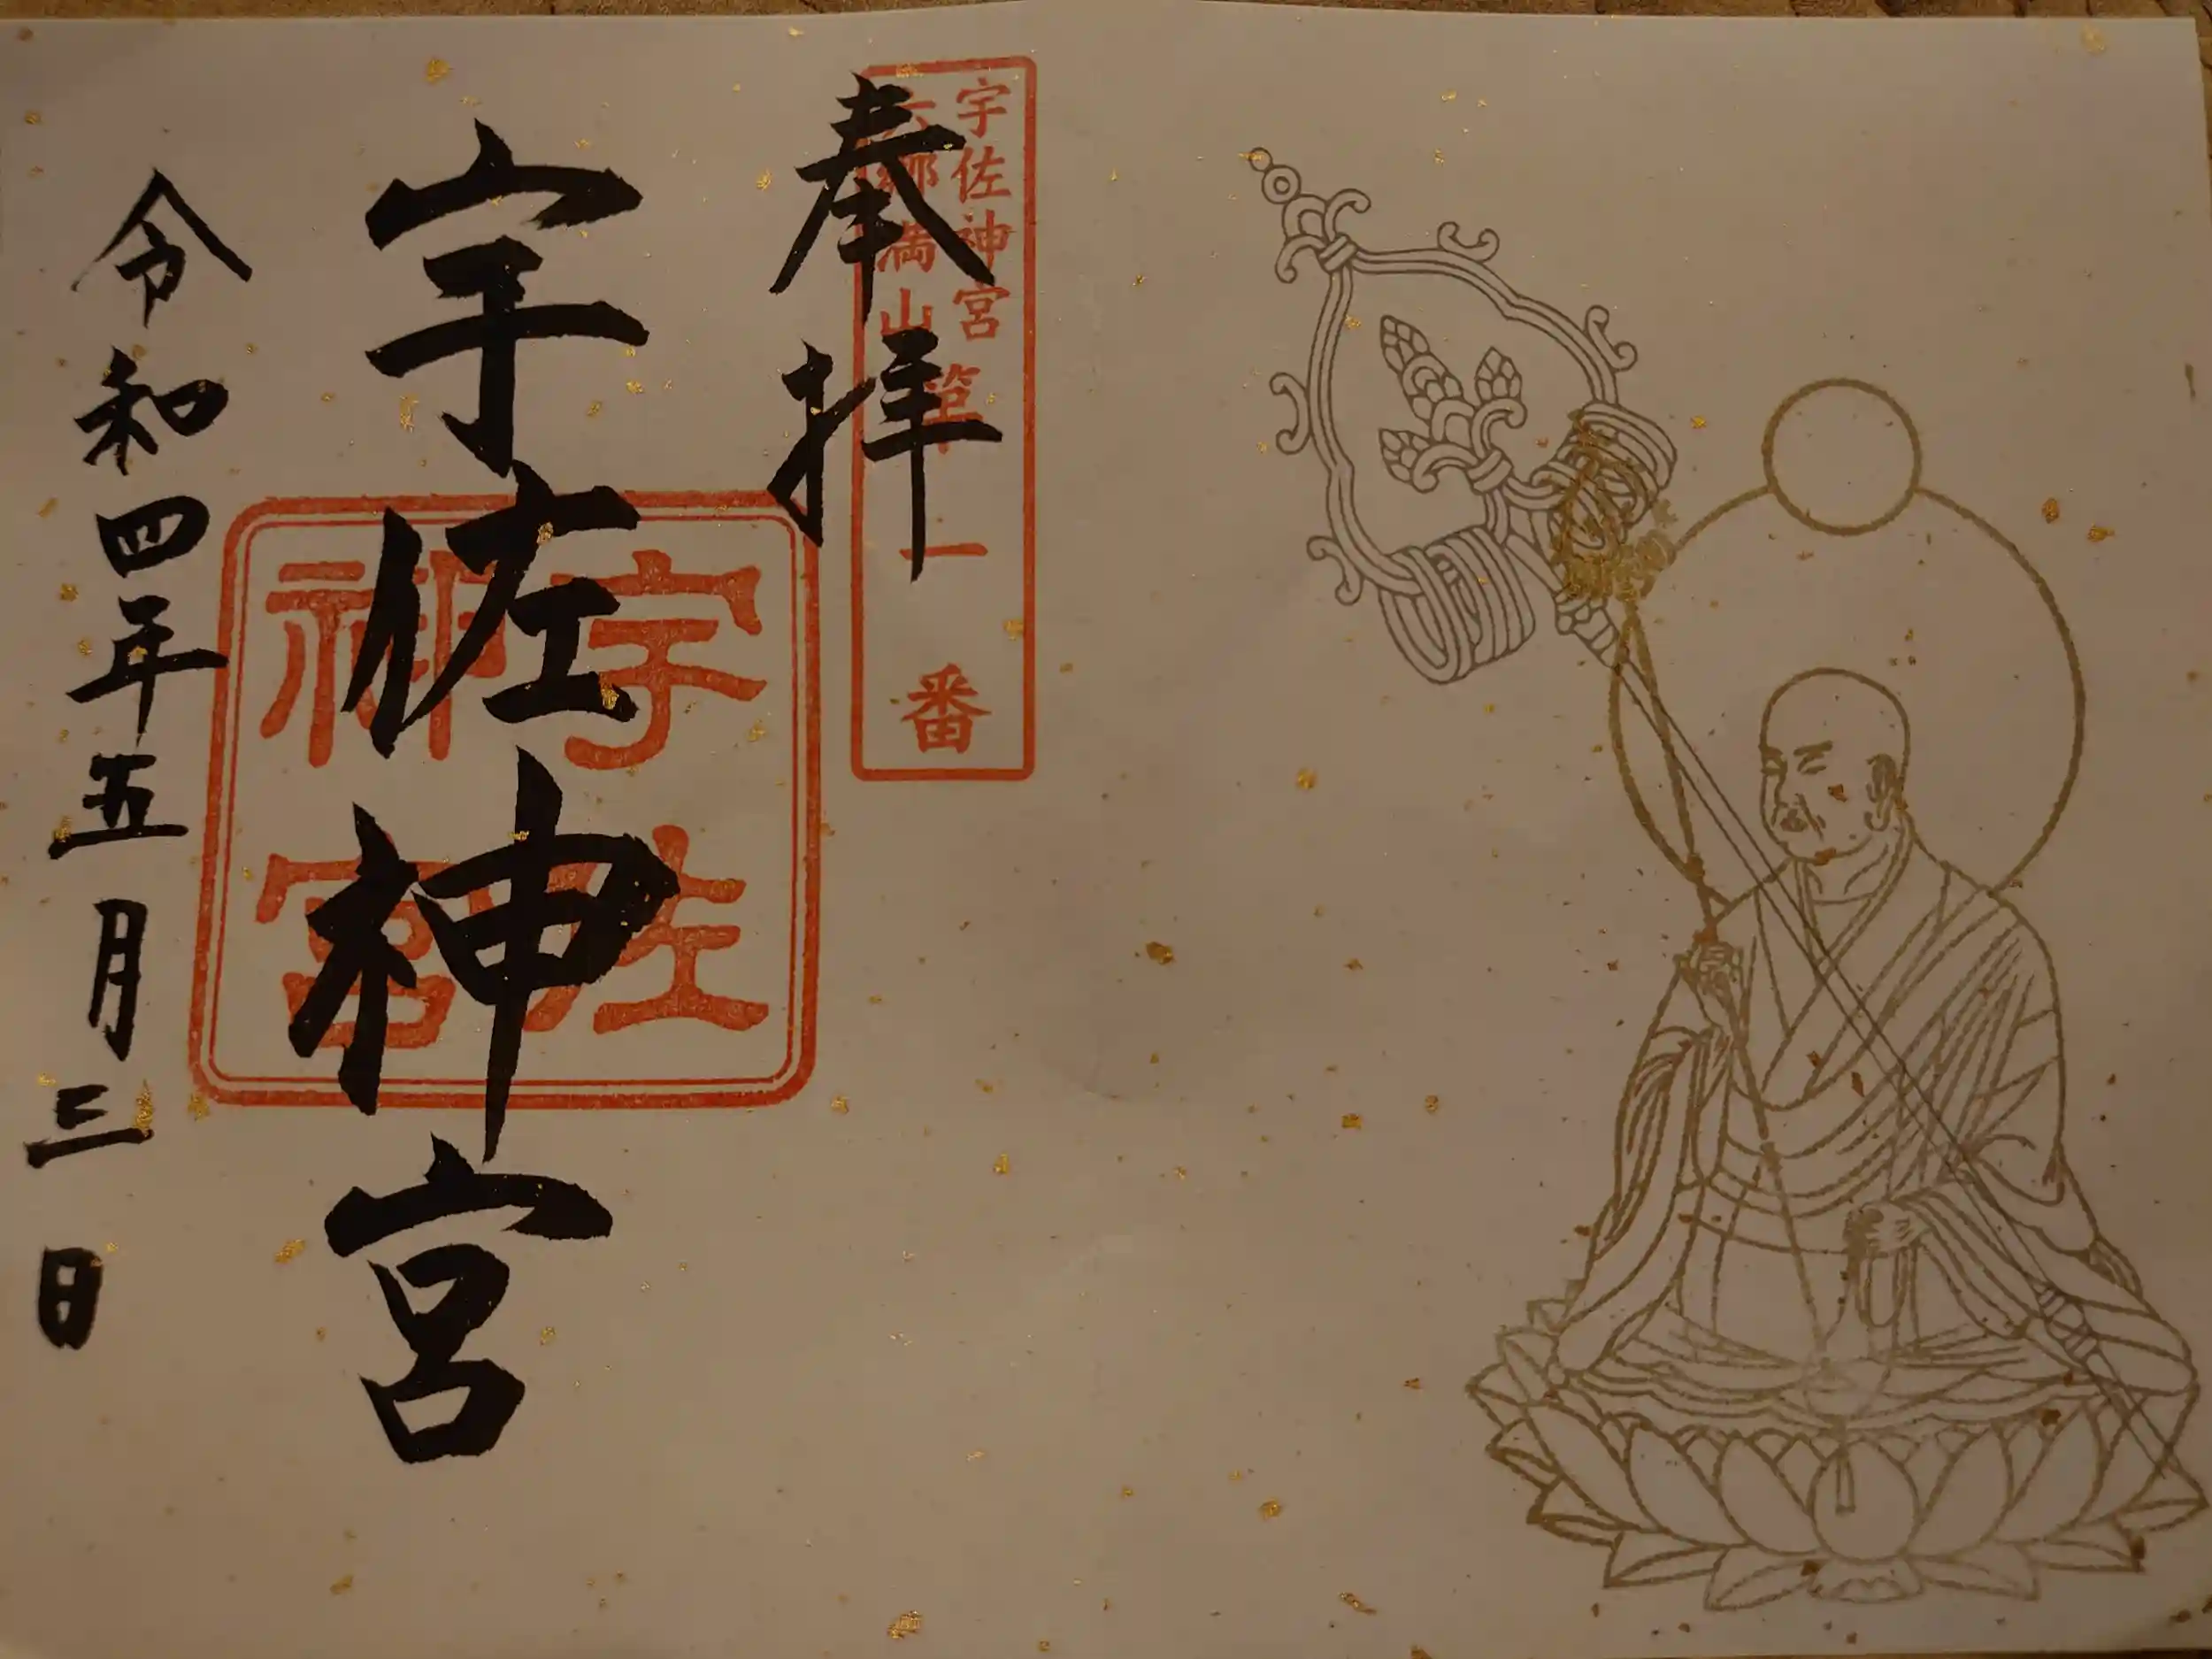 宇佐神宮
六郷満山
第一番
奉拝
宇佐神宮
宇佐
神宮
令和四年五月三日